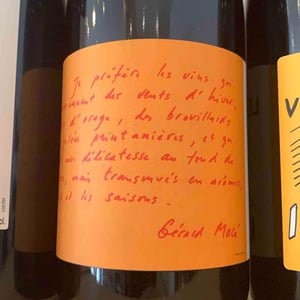 Je préfère les vins qui
des vents d'hiver,
d'orage, des brouillards
printanières, et qui
délicatesse au fond de
mais transmués en arômes,
les saisons.
Gérard
V